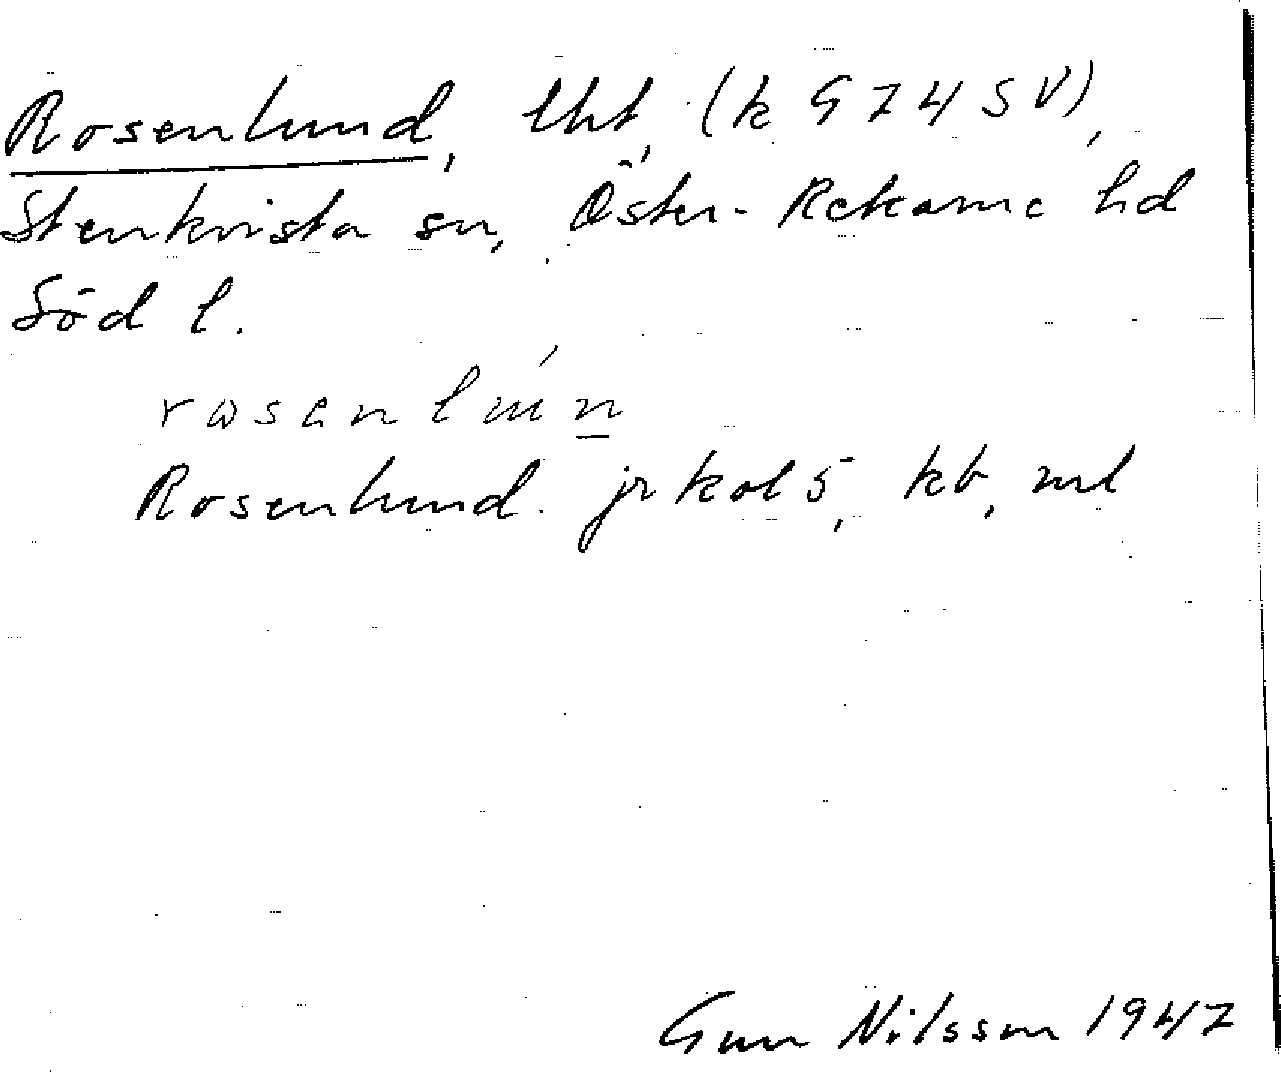 Rosenlund, lht, (k G 74 SV),
Stenkvista sn, Öster-Rekarne hd
Söd l.
rosenlun
Rosenlund. jrkol 5, kb, ml
Gun Nilsson 1947